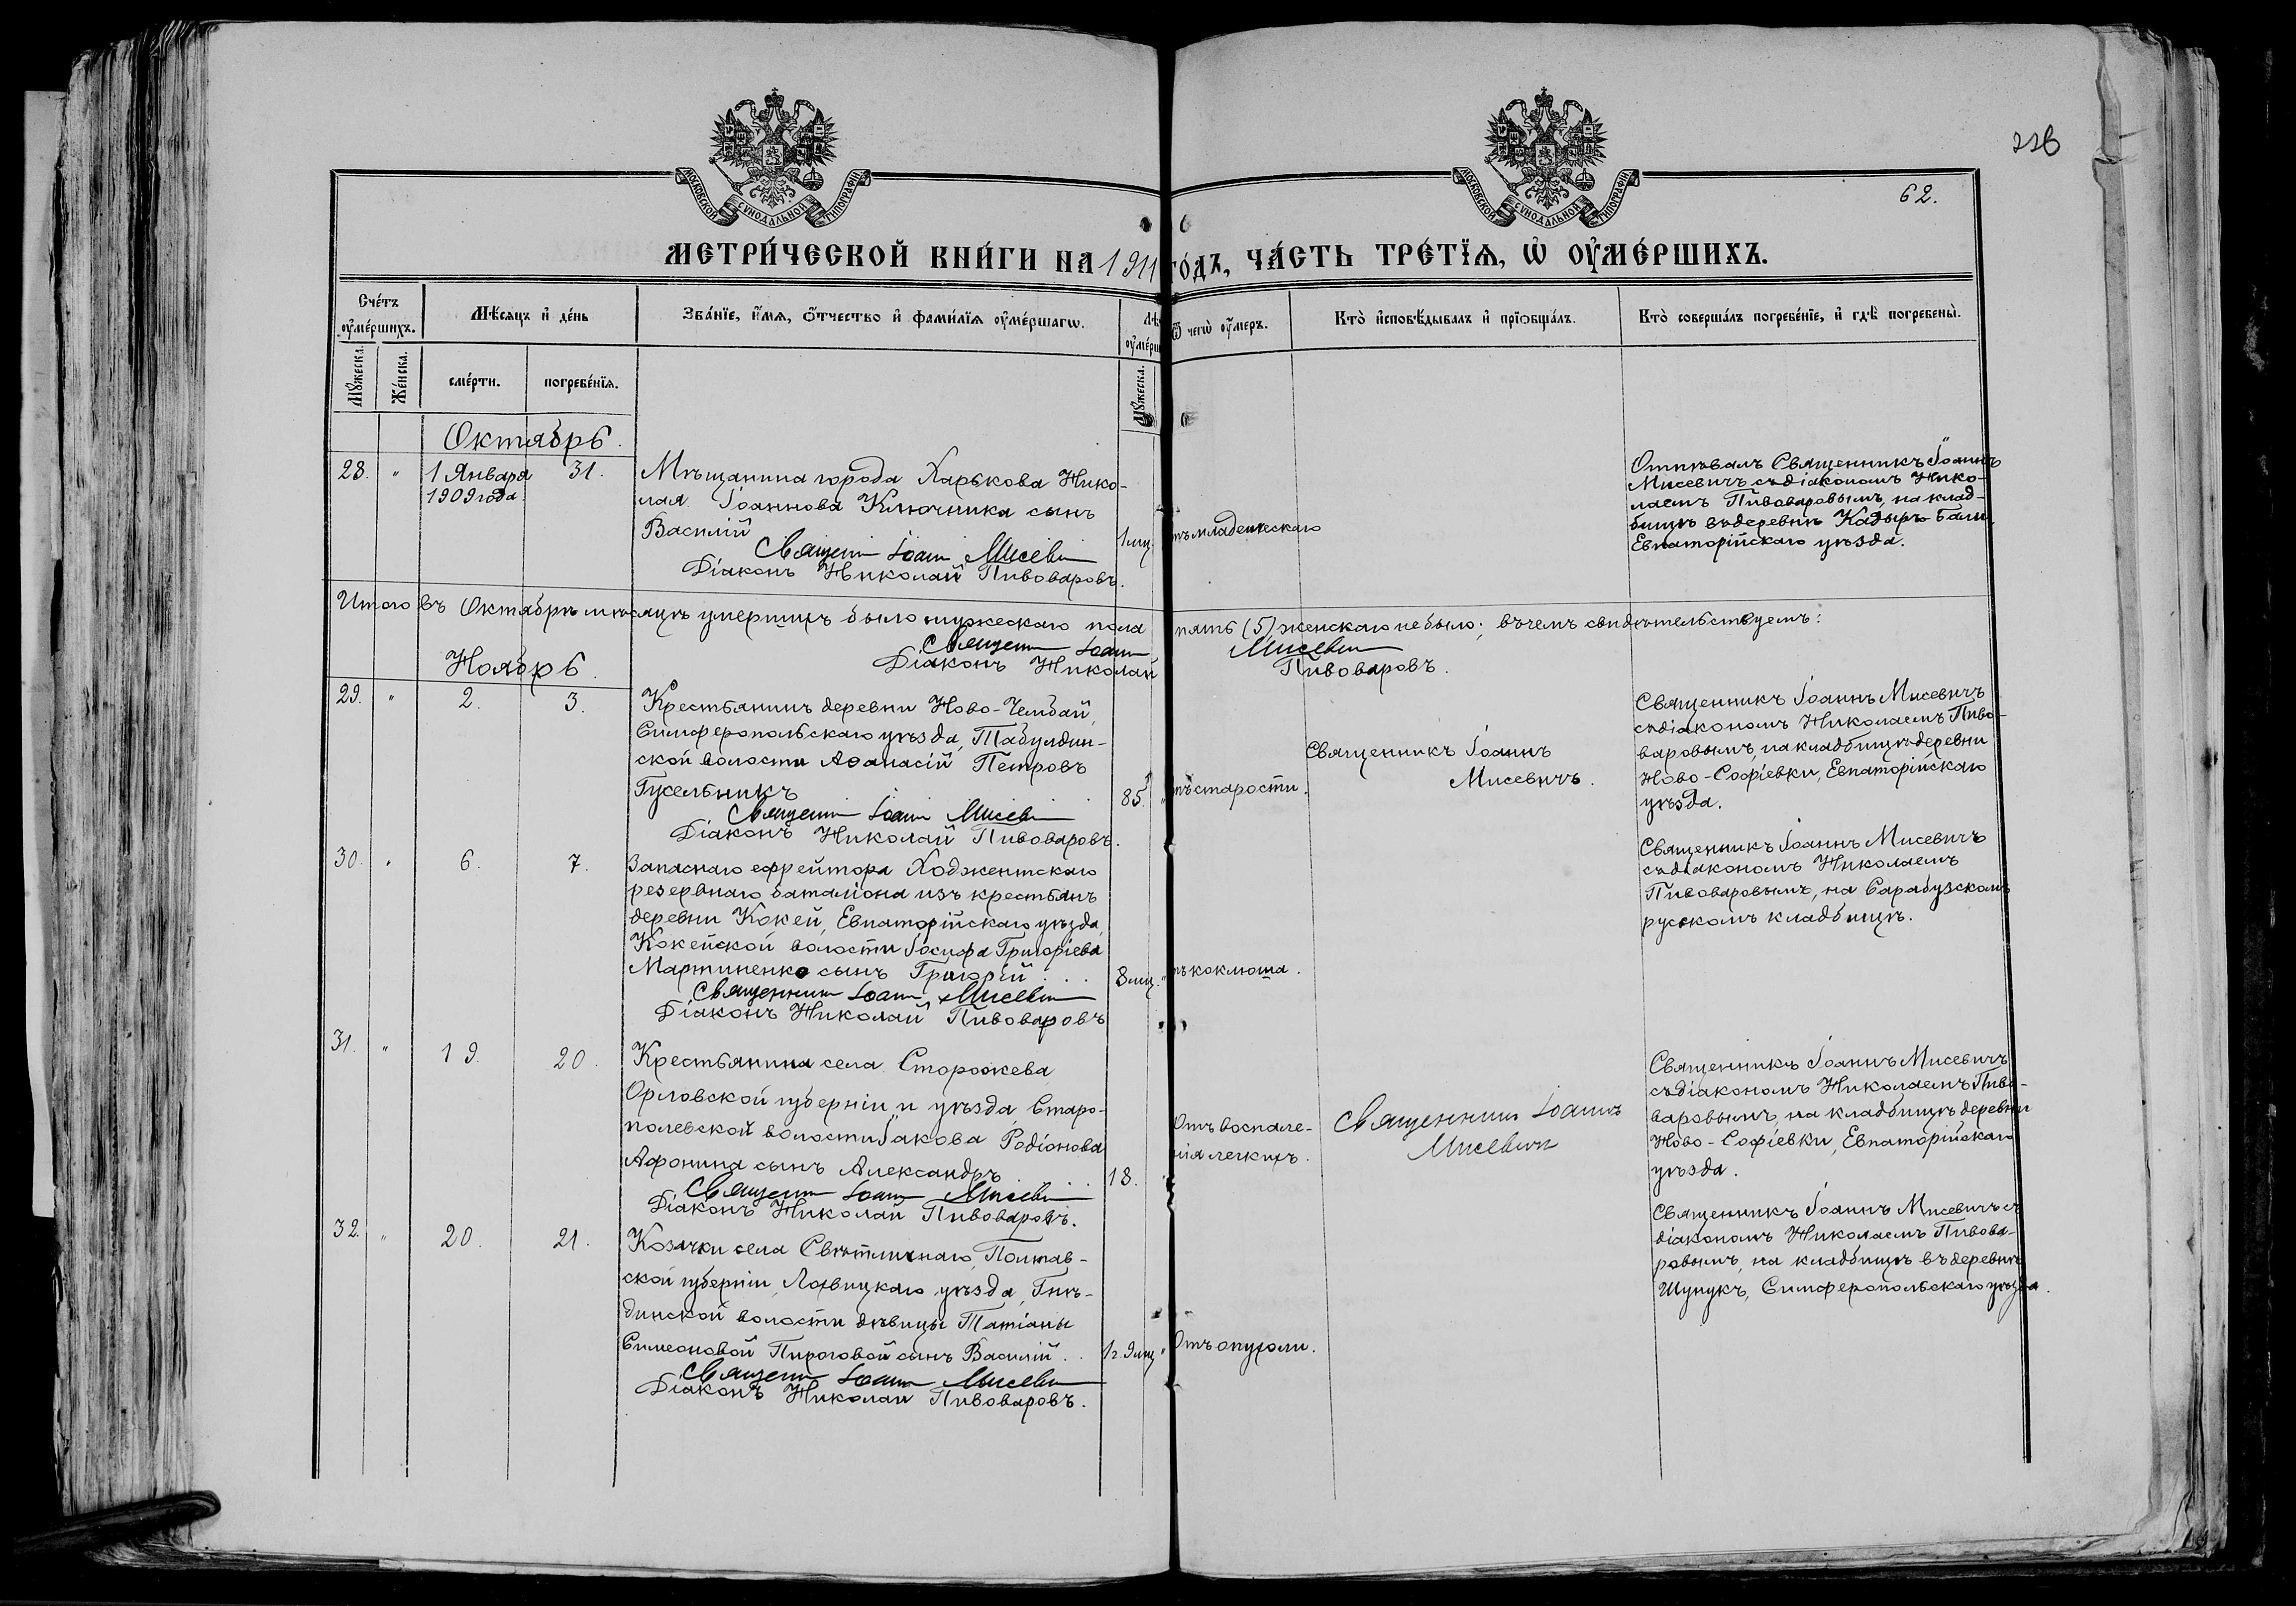 226
62.
МОСКОВСКОЙ СѴНОДАЛЬНОЙ ТИПОГРАФІИ
МОСКОВСКОЙ СѴНОДАЛЬНОЙ ТИПОГРАФІИ
МЕТРИ́ЧЕСКОЙ КНИ́ГИ НА 1911 ГО́ДЪ, ЧА́СТЬ ТРЕ́ТІѦ, Ѡ҆ ОУ҆МЕ́РШИХЪ.
Сче́тъ оу҆ме́ршихъ.
Мѣ́сяцъ и҆ де́нь
Зва́нїе, и҆́мѧ, ѻ҆́тчество и҆ фами́лїѧ оу҆ме́ршагѡ.
Лѣ
оу҆ме́рш
Ѿ чегѡ̀ оу҆́меръ.
Кто̀ и҆сповѣ́дывалъ и҆ прїобща́лъ.
Кто̀ соверша́лъ погребе́нїе, и҆ гдѣ̀ погребены̀.
Мꙋ́жеска.
Же́нска.
сме́рти.
погребе́нїѧ.
Мꙋ́жеска.
Октябрь.
28. " 1 Января 31.
1909 года.
Мѣщанина города Харькова Нико-
лая Іоаннова Ключника сынъ
Василій
Священн Іоанн Мисеви
Діаконъ Николай Пивоваровъ.
1 мц
тъ младенческаго
Отпѣвалъ Священникъ Іоаннъ
Мисевичъ съ діакономъ Нико-
лаемъ Пивоваровымъ, на клад-
бищѣ въ деревнѣ Кадыръ-Бали
Евпаторійскаго уѣзда.
Итого въ Октябрѣ мѣсяцѣ умершихъ было мужескаго пола пять (5) женскаго не было; въ чемъ свидѣтельствуемъ:
Священн Іоанн Мисевич
Діаконъ Николай Пивоваровъ.
Ноябрь.
29. " 2. 3.
Крестьянинъ деревни Ново-Чембай,
Симферопольскаго уѣзда, Табулдин-
ской волости Аѳанасій Петровъ
Гусельникъ
Священн Іоанн Мисеви
Діаконъ Николай Пивоваровъ.
85. "
тъ старости.
Священникъ Іоаннъ
Мисевичъ.
Священникъ Іоаннъ Мисевичъ
съ діакономъ Николаемъ Пиво-
варовымъ, на кладбищѣ деревни
Ново-Софіевки, Евпаторійскаго
уѣзда.
30. " 6. 7.
Запаснаго ефрейтора Ходжентскаго
резервнаго баталіона изъ крестьянъ
деревни Кокей, Евпаторійскаго уѣзда,
Кокейской волости Іосифа Григоріева
Мартиненко сынъ Григорій . . .
Священник Іоанн Мисевич
Діаконъ Николай Пивоваровъ
8 мц. "
тъ коклюша.
Священникъ Іоаннъ Мисевичъ
съ діакономъ Николаемъ
Пивоваровымъ, на Сарабузскомъ
русскомъ кладбищѣ.
31. " 19. 20.
Крестьянина села Сторожева
Орловской губерніи и уѣзда, Старо-
полевской волости Іакова Родіонова
Афонина сынъ Александръ
Священн Іоанн Мисеви
Діаконъ Николай Пивоваровъ.
18.
Отъ воспале-
нія легкихъ.
Священник Іоаннъ
Мисевич
Священникъ Іоаннъ Мисевичъ
съ діакономъ Николаемъ Пиво-
варовымъ, на кладбищѣ деревни
Ново-Софіевки, Евпаторійскаго
уѣзда.
32. " 20. 21.
Козачки села Свѣтличнаго, Полтав-
ской губерніи, Лохвицкаго уѣзда, Гнѣ-
динской волости дѣвицы Татіаны
Симеоновой Пироговой сынъ Василій . .
Священн Іоанн Мисевич
Діаконъ Николай Пивоваровъ.
1 г. 9 мц "
Отъ опухоли.
Священникъ Іоаннъ Мисевичъ съ
діакономъ Николаемъ Пивова-
ровымъ, на кладбищѣ въ деревнѣ
Шунукъ, Симферопольскаго уѣзда.